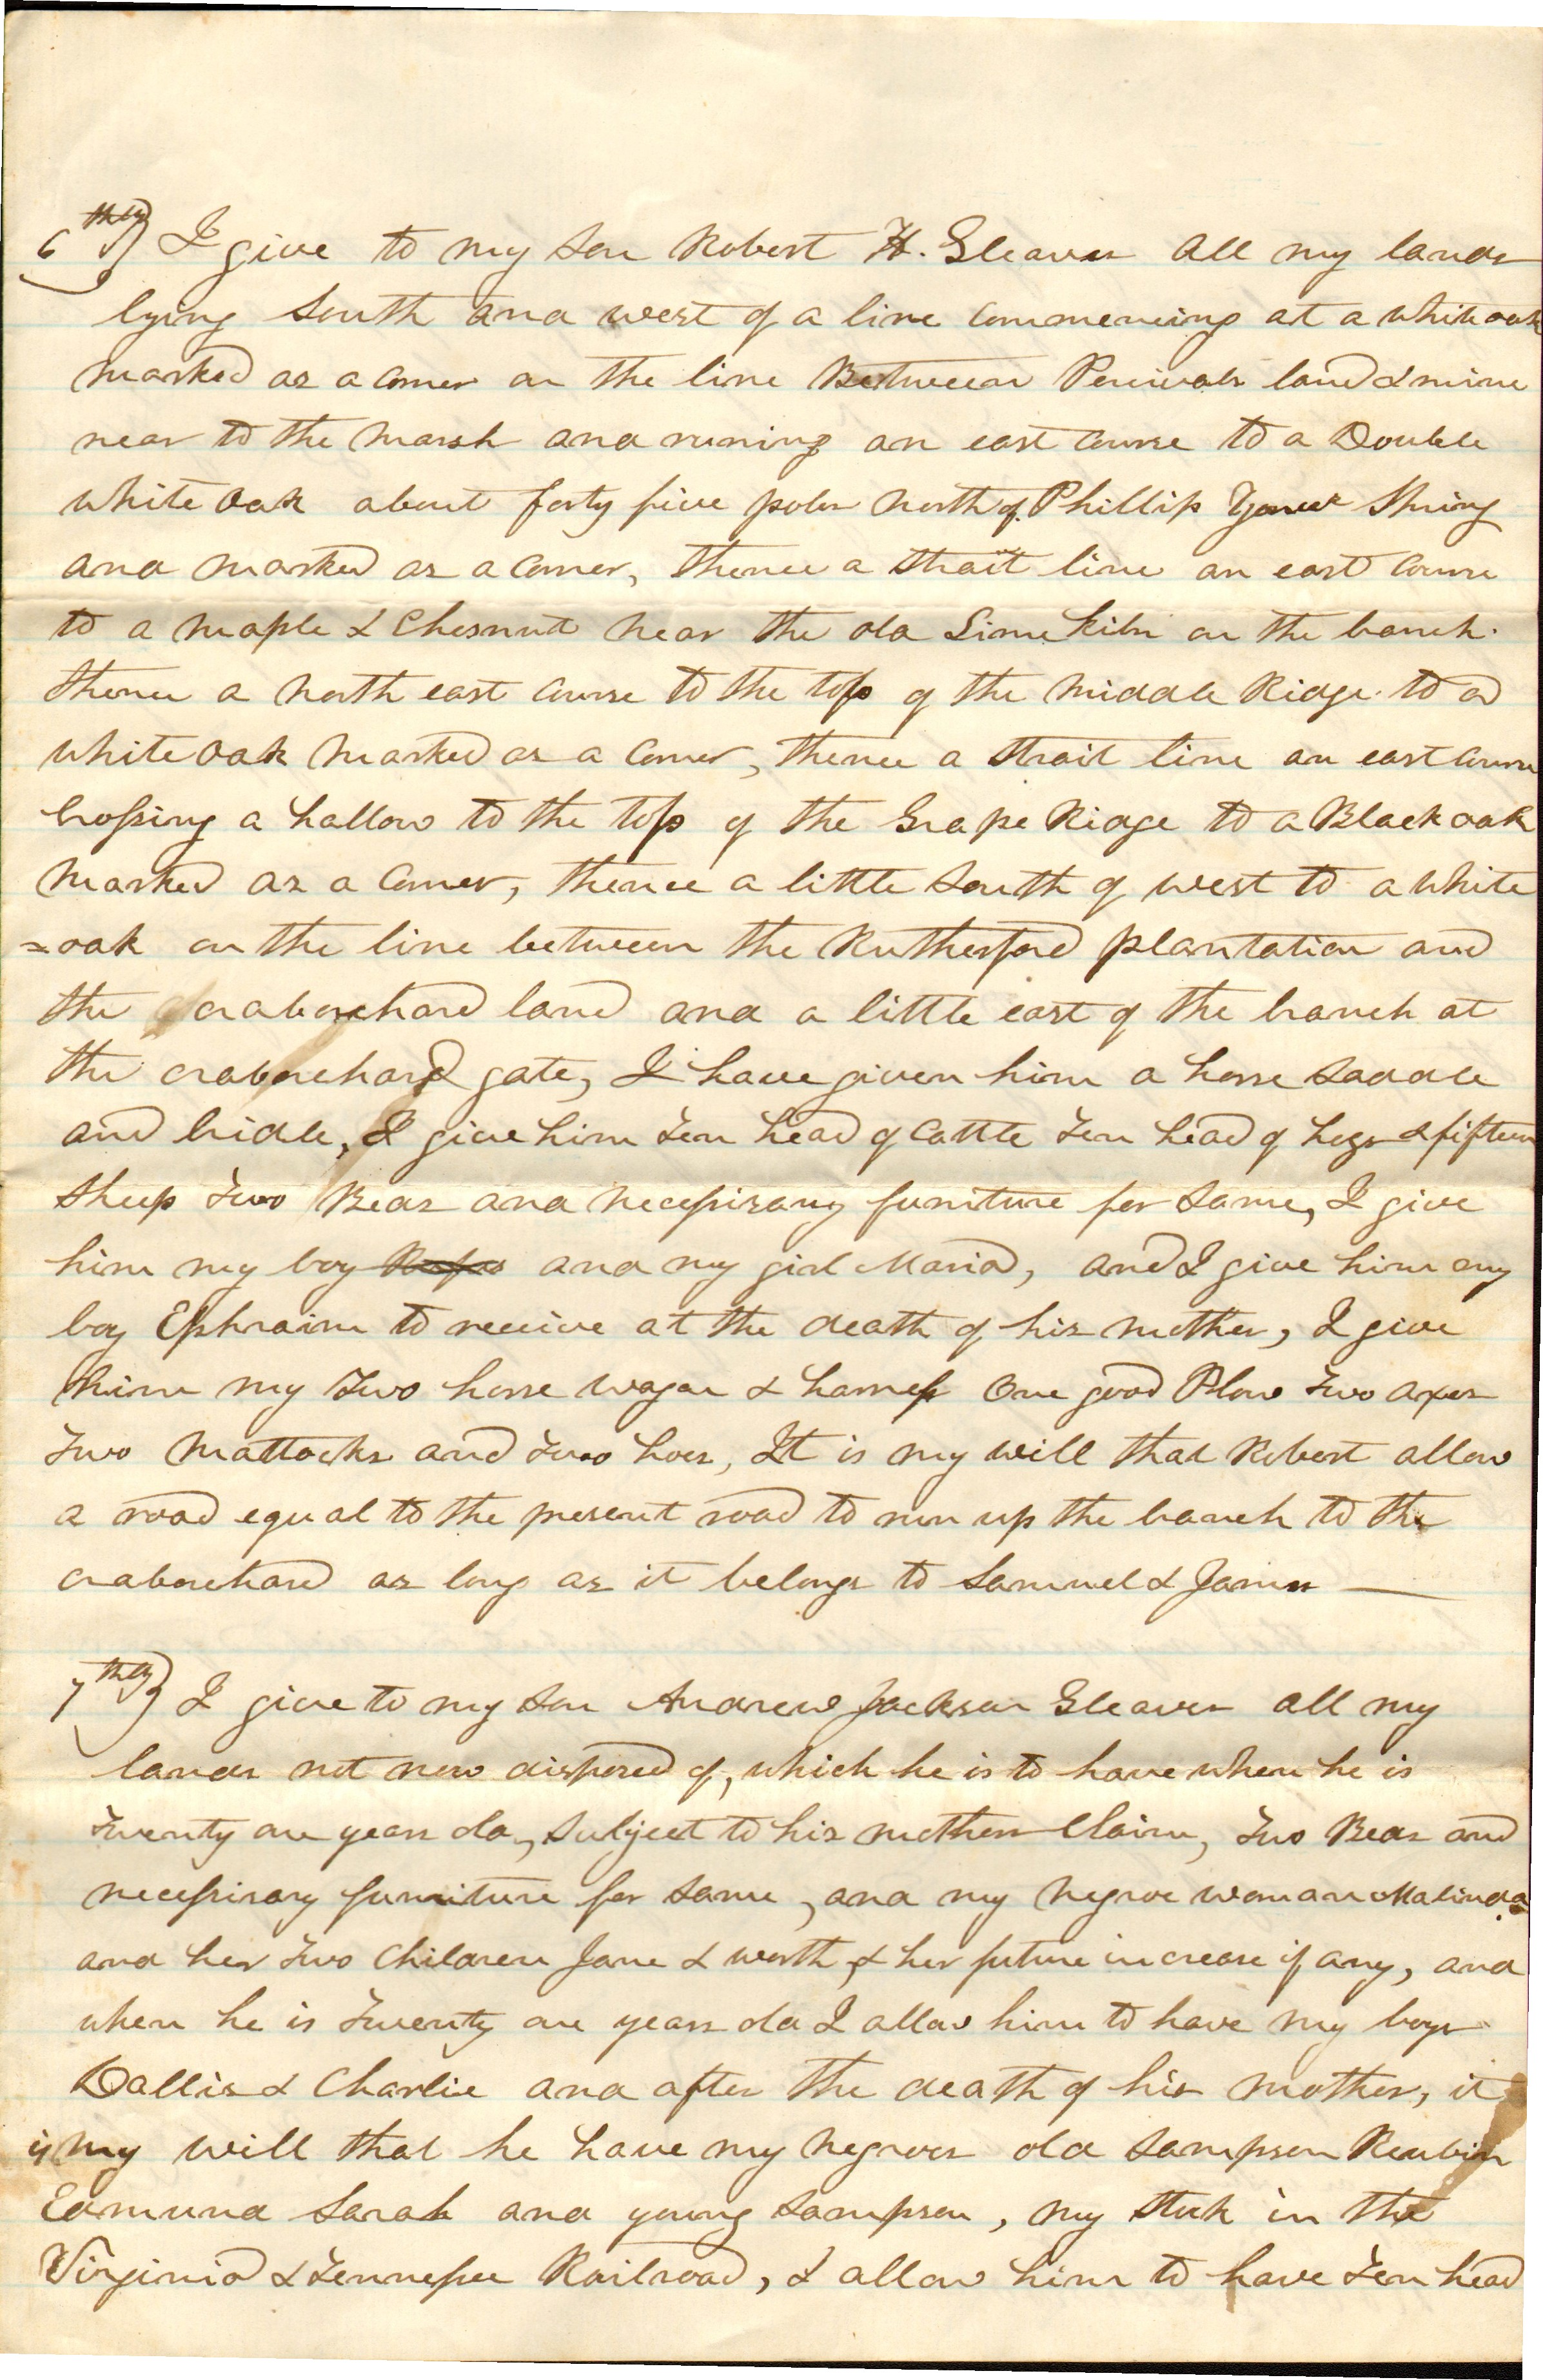 6thly) I give to my son Robert H. Gleaves all my lands
lying south and west of a line commencing at a white oak
marked as a corner on the line Between Percivals land & mine
near to the marsh and runing an east course to a Double
white oak about forty five poles north of Phillip Yonces Spring
and marked as a corner, thence a strait line an east course
to a maple & Chesnut near the old Lime kiln on the branch.
thence a north east course to the top of the middle Ridge to a
white oak marked as a corner, thence a strait line an east course
crossing a hallow to the top of the Grape Ridge to a Black oak
marked as a corner, thence a little south of west to a white
=oak on the line between the Rutherford plantation and
the craborchard land and a little east of the branch at
the craborchard gate, I have given him a horse saddle
and bridle, I give him Ten head of cattle Ten head of hogs & fifteen
sheep Two Beds and necessisary furniture for same, I give
him my boy and my girl Maria, and I give him my
boy Ephraim to receive at the death of his mother, I give
him my Two horse wagon & harness One good Plow Two axes
Two mattocks and Two hoes, It is my will that Robert allow
a road equal to the present road to run up the branch to the
craborchard as long as it belongs to Samuel & James
7thly) I give to my son Andrew Jackson Gleaves all my
lands not now disposed of, which he is to have when he is
Twenty one years old, subject to his mothers Claim, Two Beds and
necessisary furniture for same, and my negroe woman Malinda
and her Two Children Jane & worth, & her future increase if any, and
when he is Twenty one years old I allow him to have my boys
Dallis & Charlie and after the death of his mother, it
is my will that he have my negroes old Sampson Reubin
Edmund Sarah and young Sampson, my stock in the
Virginia & Tennessee Railroad, & allow him to have Ten head